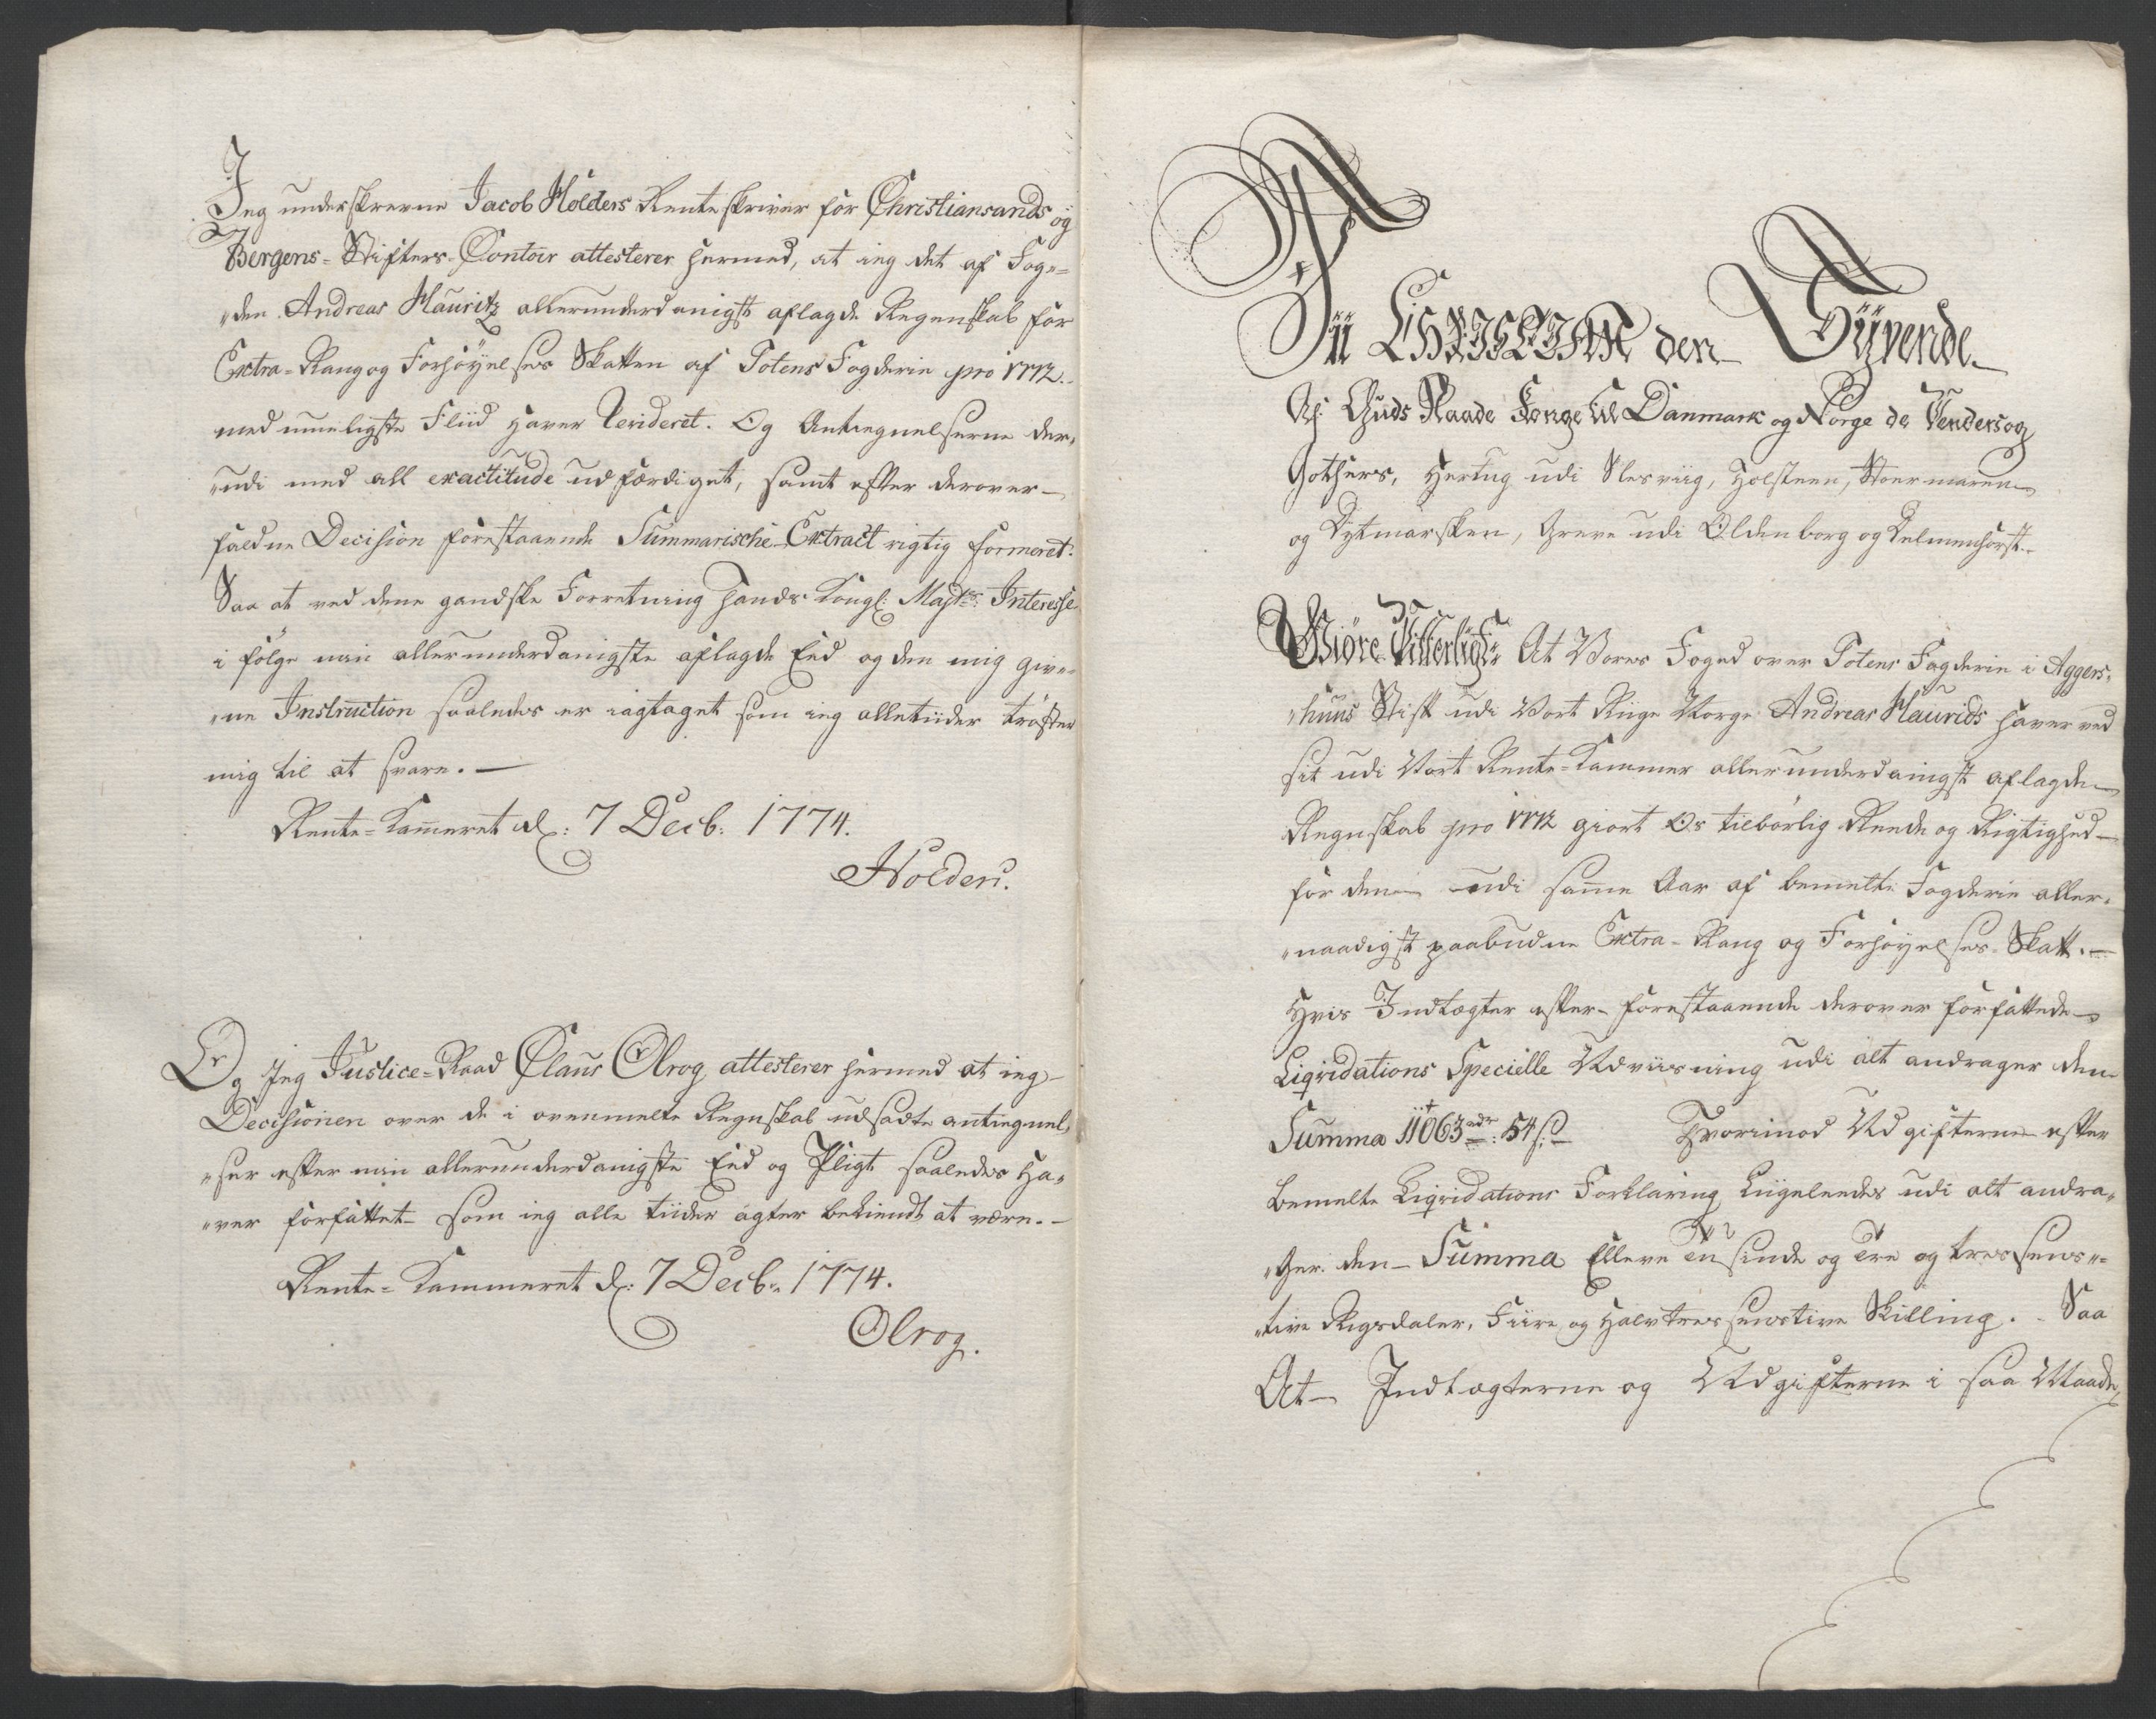 Jeg underskrevne Jacob Holders Renteskriver for Christiansands og
Bergens-Stifters-Contoir attesterer hermed, at ieg det af Foge-
„den Andreas Hauritz allerunderdanigst aflagde Regenskab for
Extra-Rang og Forhøyelses Skatten af Totens Fogderie pro 1772.
med mueligste Fliid haver Revideret. Og Antegnelserne der„
„udi med all exactitude udfærdiget, samt efter derover
faldne Decision forestaaende Summariske Extract rigtig formeret.
Saa at ved dene gandske Forretning Hands Kongl: Majts: Interesse
i følge min allerunderdanigste aflagde Eed og den mig give„
„ne Instruction saaledes er iagtaget som ieg alletiider trøster
mig til at svare. —
Rente-Kam̄eret d: 7 Decb: 1774.
Holders.
Og Jeg Justice-Raad Claus Olrog attesterer hermed at ieg
Decisionen over de i ovenmelte Regnskab udsadte antegnel„
„ser efter min allerunderdanigste Eed og Pligt saaledes ha„
„ver forfattet som ieg alle tiider agter bekiendt at være. —
Rente-Kammeret d: 7 Decb: 1774.
Olrog.
Vii CHRISTIAN den Syvende
Af Guds Naade Konge til Danmark og Norge de Venders og
Gothers, Hertug udi Slesviig, Holsteen, Stormaren
og Dytmarsken, Greve udi Oldenborg og Delmenhorst.
Giöre Vitterligt: At Vores Foged over Totens Fogderie i Aggers„
„huus Stift udi Vort Riige Norge Andreas Haurids haver ved
sit udi Vort Rente-Kammer allerunderdanigst aflagde
Regnskab pro 1772 giort Os tilbørlig Reede og Rigtighed
for den udi sam̄e Aar af bemelte Fogderie aller„
„naadigst paabudne Extra-Rang og Forhøyelses-Skatt. —
Hvis Indtægter efter forestaaende derover forfattede
Liqvidations Specielle Udviisning udi alt andrager den
Summa 11063 rdr: 54 s. Hvorimod Udgifterne efter
bemelte Liqvidations Forklaring liigeleedes udi alt andra„
„ger den Summa Elleve Tusinde og Tre og tresinds„
„tive Rigsdaler, Fiire og halvtresindstive Skilling. Saa
At Indtægterne og Udgifterne i saa Maade